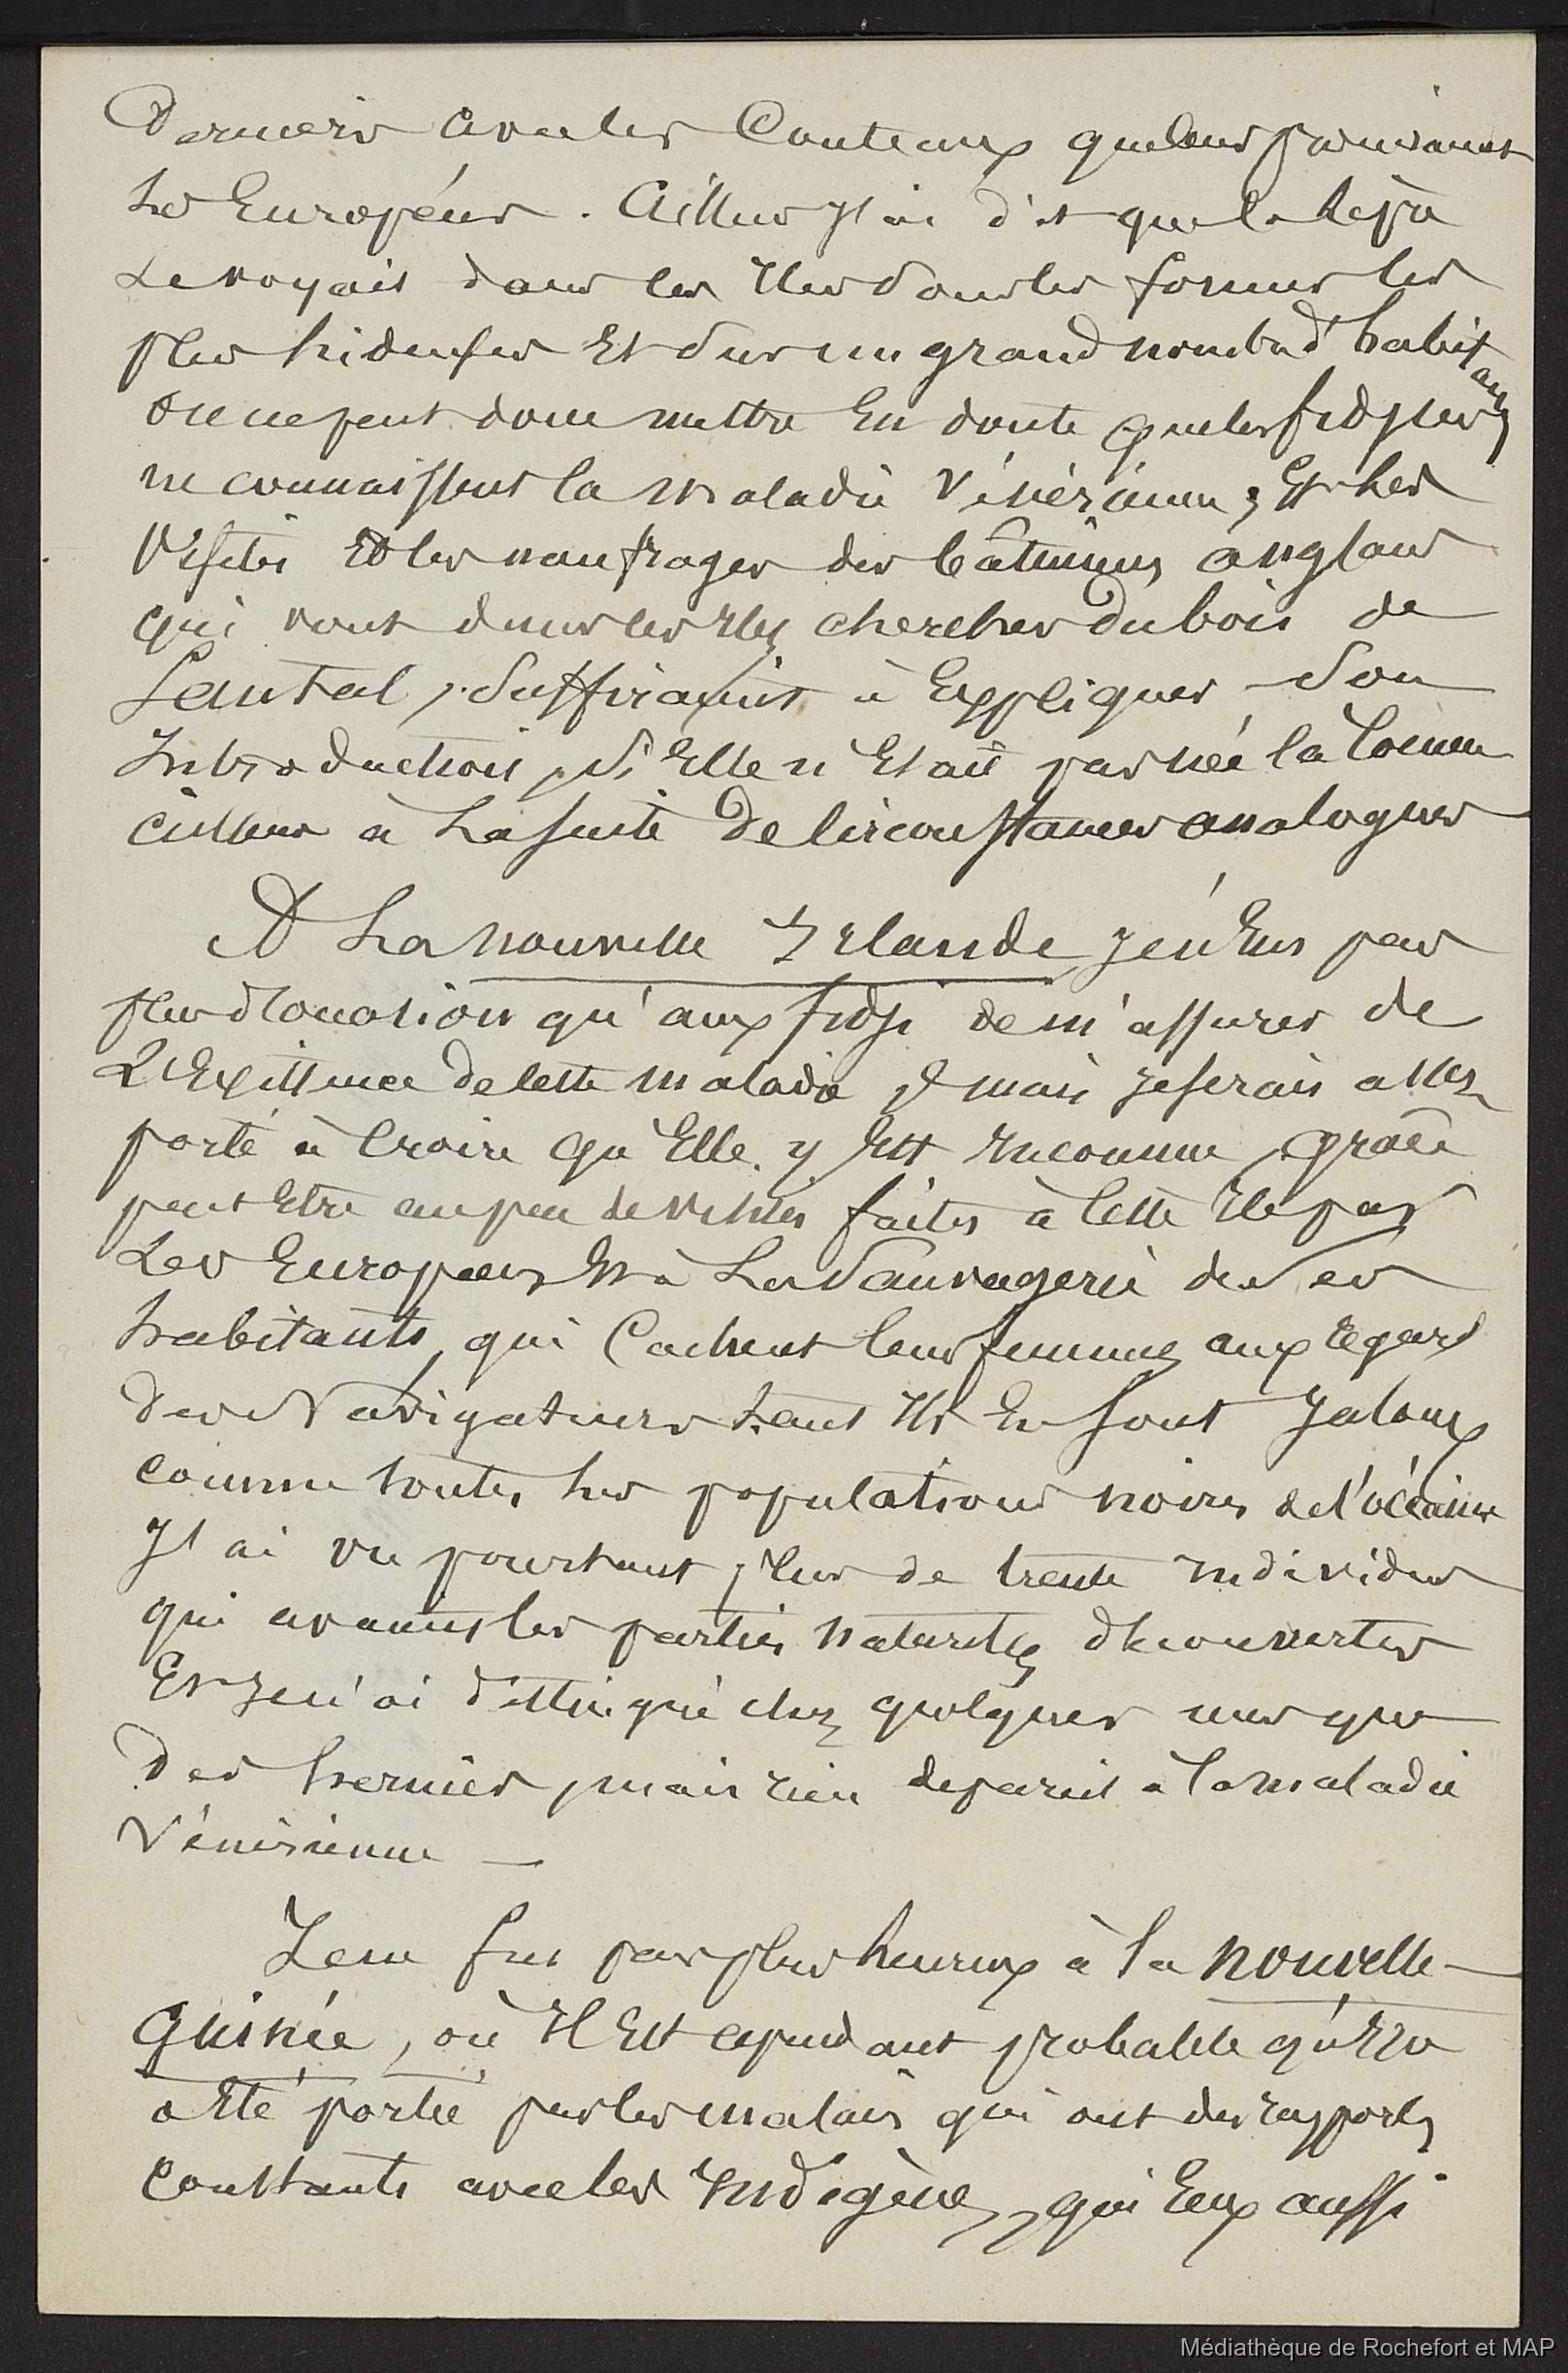 Derniers avec les Couteaux que leur fournissent
Les Européens. Ailleurs J'ai dit que la lèpre
Se voyait dans les Iles sous les formes les
plus hideuses Et sur un grand nombre d'habitans
On ne peut donc mettre En doute que les fidjiens
ne connaissent la maladie Vénérienne; Et les
Visites Et les naufrages des bâtimens anglais
qui vont dans les Iles chercher du bois de
Santal, Suffiraient à Expliquer son
Introduction, Si Elle n'Etait pas née là comme
ailleurs à La suite de Circonstances analogues
A La nouvelle Irlande Je n'Eus pas
plus d'occasion qu'aux fidji de m'assurer de
L'Existence de cette maladie, mais Je serais assez
porté à Croire qu'Elle y Est Inconnue, grâce
peut Etre au peu de visites faites à cette Ile par
Les Européens Et à La Sauvagerie de Ses
habitants, qui Cachent leurs femmes aux regards
des Navigateurs tant Ils En sont Jaloux
comme toutes les populations noires de l'océanie
J'ai vu pourtant plus de trente Individus
qui avaient les parties naturelles découvertes
Et Je n'ai distingué chez quelques uns que
des hernies, mais rien de pareil à la maladie
Vénérienne —
Je ne fus pas plus heureux à la nouvelle-
Guinée, où Il Est cependant probable qu'Elle
a Eté portée par les malais qui ont des rapports
Constants avec les Indigènes, qui Eux aussi
Médiathèque de Rochefort et MAP